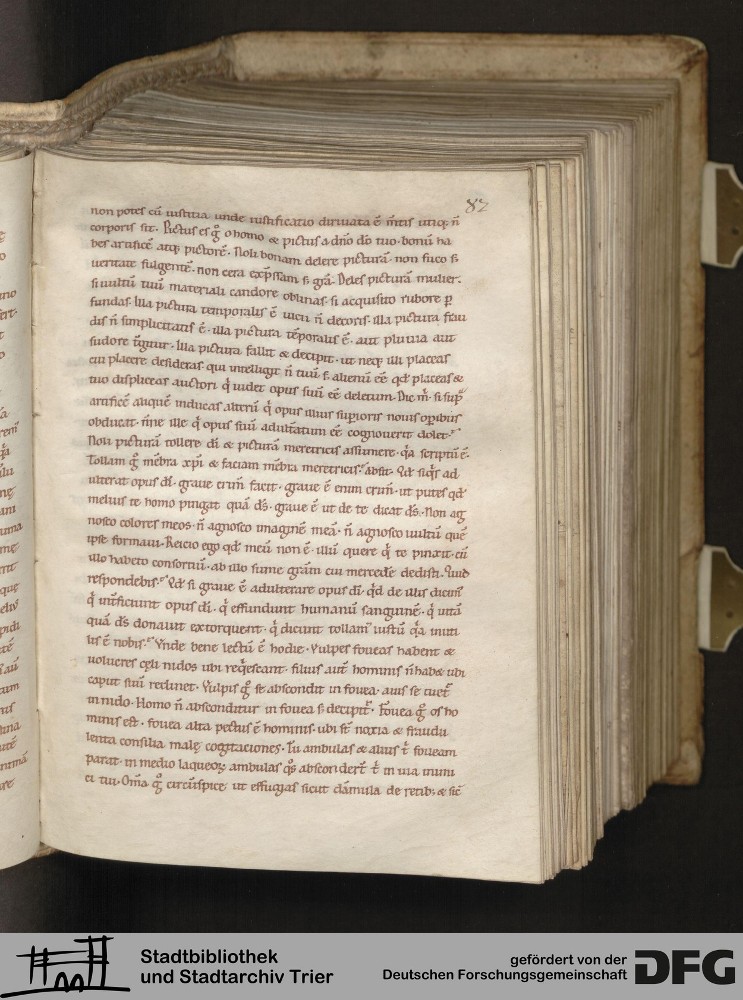 82
non potest cū iustitia unde iustificatio diriuata ē mentis utiq; n̄
corporis sit. Pictus es gͦ o homo & pictus a dn̄o dō tuo. bonū ha
bes artificē atq; pictorē. Noli bonam delere picturā. non fuco s;
ueritate fulgentē. non cera exp̄ssam s; gr̄a. Deles picturā mulier.
si uultū tuū materiali candore oblinas. si acquisito rubore ꝑ
fundas. Illa pictura temporalis ē uicii n̄ decoris. illa pictura frau
dis n̄ simplicitatis ē. illa pictura tēporalis ē. aut pluuia aut
sudore t̄gitur. Illa pictura fallit & decipit. ut neq; illi placeas
cui placere desideras qui intelligit n̄ tuū s; alienū eē qd̄ placeas &
tuo displiceas auctori q̄ uidet opus suū eē deletum. Dic m̄. si sup̄
artificē aliquē inducas alterū q̄ opus illius supioris nouis opībus
obducat. n̄ne ille q̄ opus suū adulteratum eē cognouerit dolet?
Noli picturā tollere dī & picturā meretricis assumere. q̄a scriptū ē.
Tollam gͦ mēbra xp̄i & faciam mēbra meretricis? absit. Qd̄ siq̄s ad
ulterat opus dī. graue crim̄ facit. graue ē enim crim̄. ut putes qd̄
melius te homo pingat quā ds̄. graue ē ut de te dicat ds̄. Non ag
nosco colores meos. n̄ agnosco imaginē meā. n̄ agnosco uultū quē
ipse formaui. Reicio ego qd̄ meū non ē. illū quere q̄ te pinxit. cū
illo habeto consortiū. ab illo sume grām cui mercedē dedisti. Quid
respondebis? Qd̄ si graue ē adulterare opus dī. qd̄ de illis dicim̄
q̄ int̄ficiunt opus dī. q̄ effundunt humanū sanguinē. q̄ uitā
quā ds̄ donauit extorquent. q̄ dicunt tollam̄ iustū q̄a inuti
lis ē nobis? Vnde bene lectū ē hodie. Vulpes foueas habent &
uolucres cęli nidos ubi req̄escant. filius aut̄ hominis n̄ habet ubi
caput suū reclinet. Vulpis gͦ se abscondit in fouea. auis se tuet̄
in nido. Homo n̄ absconditur in fouea s; decipit̄. Fouea gͦ os ho
minis est. fouea alta pectus ē hominis. ubi st̄ noxia & fraudu
lenta consilia malę cogitaciones. Tu ambulas & alius t̄ foueam
parat. in medio laqueoꝝ ambulas q̄s absconder̄t t̄ in uia inimi
ci tui. Om̄a gͦ circūspice. ut effugias sicut dāmula de retib; & sic̄
Stadtbibliothek
und Stadtarchiv Trier
gefördert von der
Deutschen Forschungsgemeinschaft
DFG